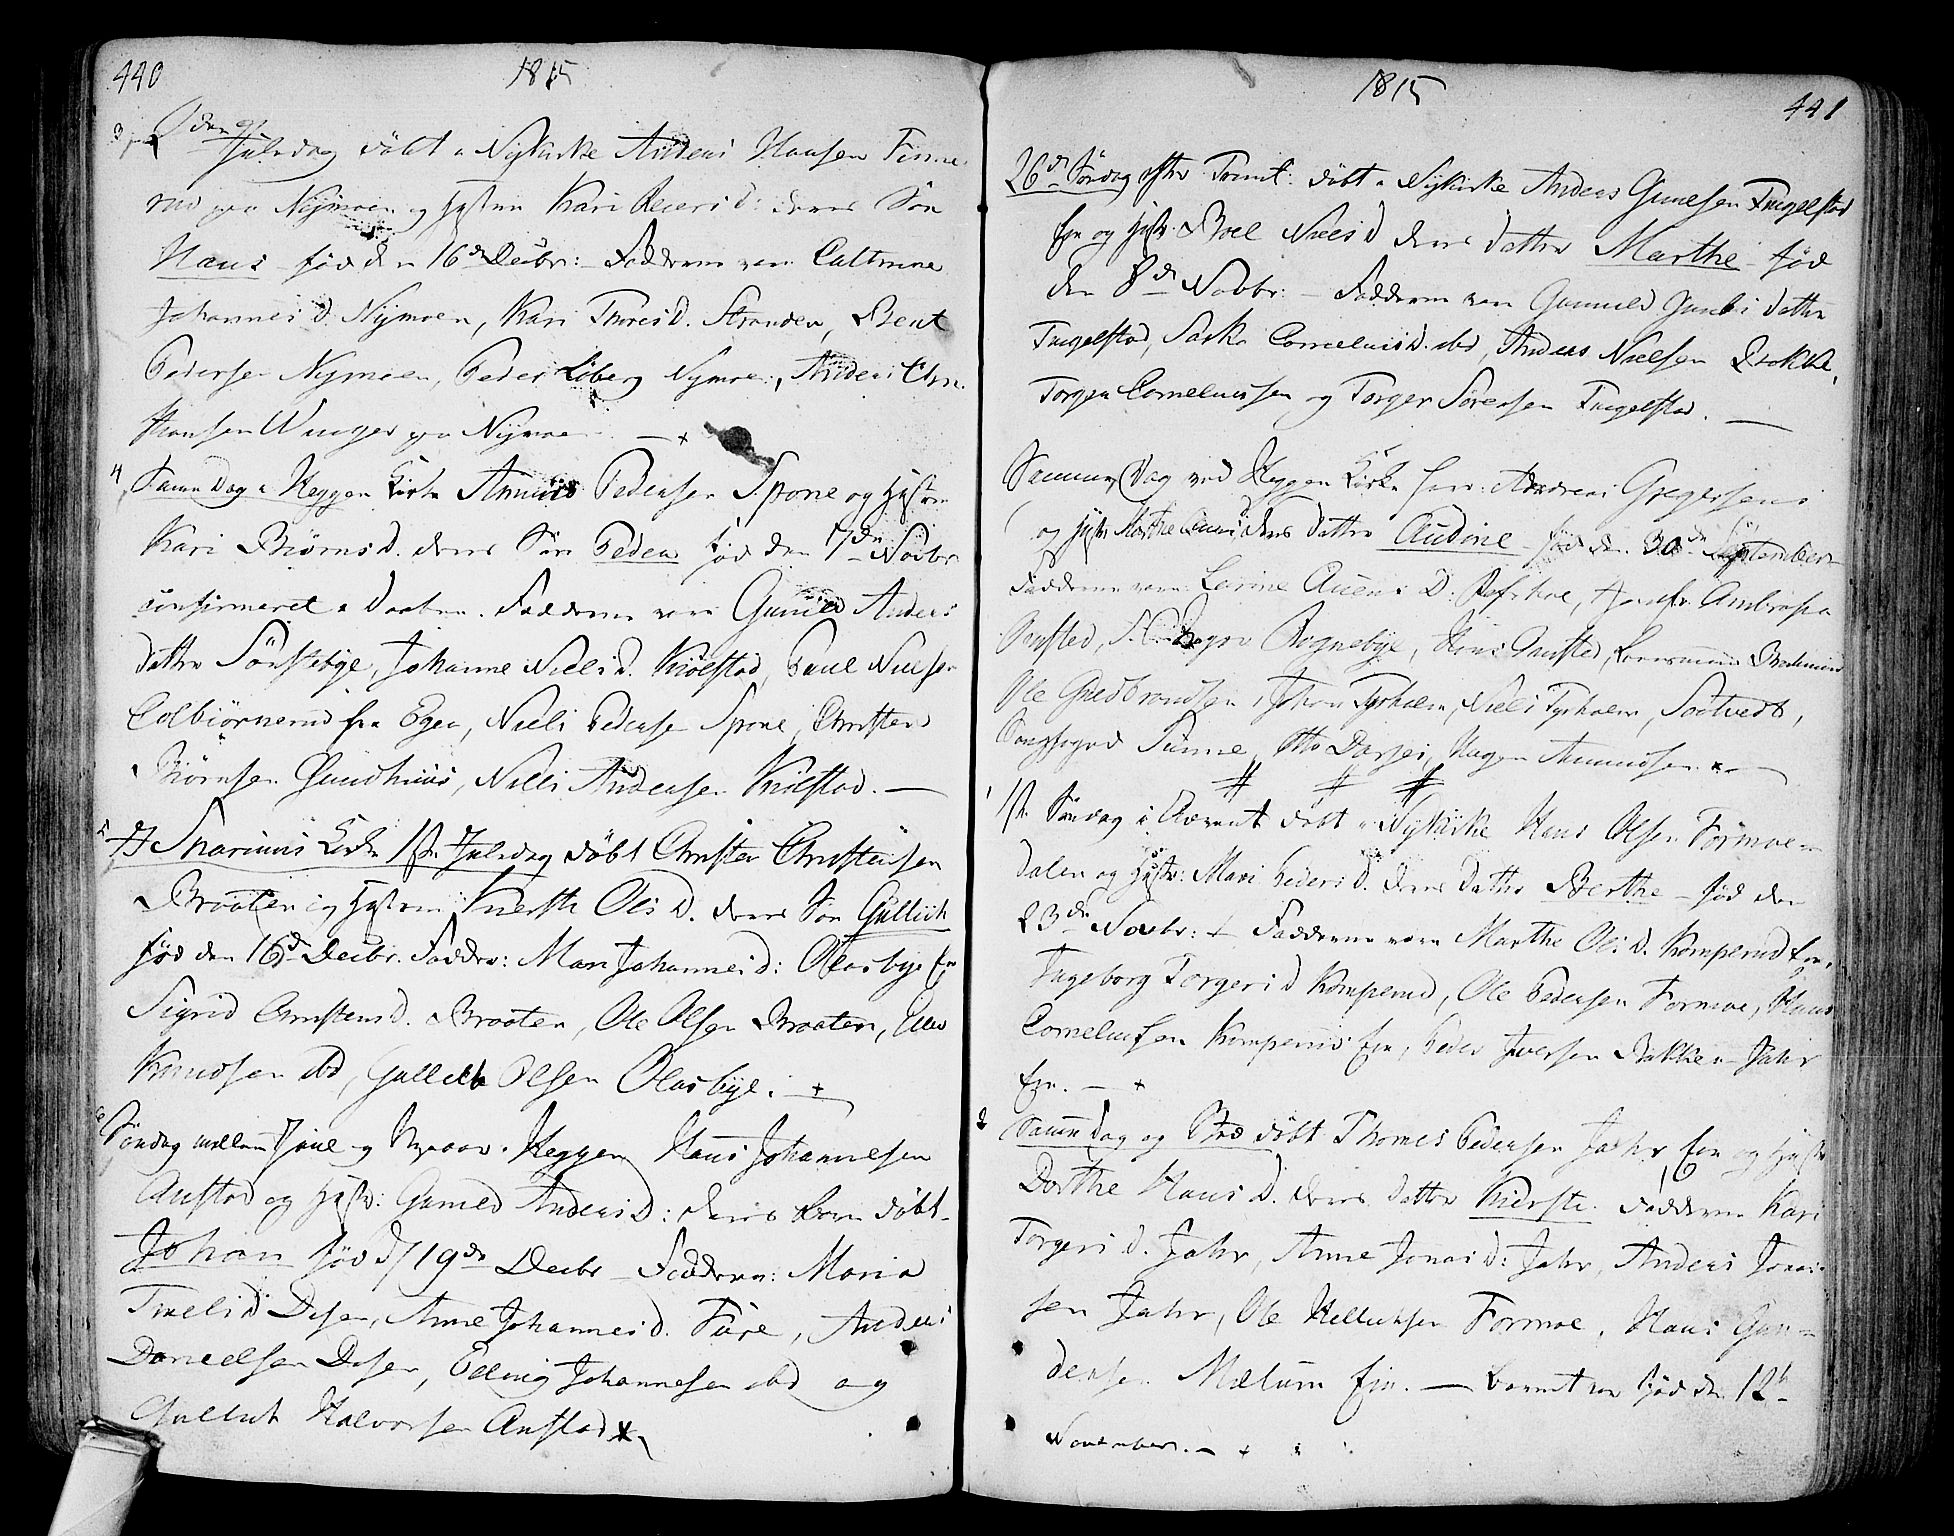 440
1815
3
Juledag döbt i Nykirke Anders Hansen Finne
rud paa Nymoen og Hustrue Kari Reiersd: deres Sön
Hans föd den 16de Decbr: Fadderne vare Cathrine
Johannesd. Nymoen, Kari Thoresd. Stranden, Bent
Pedersen Nymoen, Peder Liberg Nymoe, Anders Chri
stiansen Winger paa Nymoen
4
Samme Dag i Heggen Kirke Anders Pedersen Spone og Hustrue
Kari Biörnsd. deres Sön Peder föd den 7de Novbr
confirmeret i Daaben. Fadderne vare Gunild Anders
datter Sönstebye, Johanne Nielsd. Kiölstad, Paul Nielsen
Colbiörnerud fra Eger, Niels Pedersen Spone, Christen
Biörnsen Gundhuus, Niels Andersen Kiölstad.
5
I Snarums Kirke 1ste Juledag döbt Christen Christensen
Braaten og Hustrue Kierste Olsd. deres Sön Gullich
föd den 16de Decbr. Faddere: Mari Johannesd: Olasbye
Sigrid Christensd. Braaten, Ole Olsen Braaten,
Knudsen ibd, Gullich Olsen Olasbye.
6
Söndag mellem Juel og Nyaar i Heggen Hans Johannesen
Anstad og Hust: Gunild Andersd: deres Barn döbt
Johan föd d/ 19de Decbr Fadderne: Maria
Troelsd Desen, Anne Johannesd. Fure, Anders
Danielsen Desen, Edvig Johannesen ibd og
Gullich Halvorsen Anstad
1815
441
26de Söndag efter Trinit: döbt i Nykirke Anders Gunelsen Tingelstad
Eje og Hust. Boel Nielsd deres datter Marthe föd
den 8de Novbr: Fadderne vare Gunnild datter
Tingelstad, Corneliusd. ibd, Anders Nielsen
Torger Corneliussen og Torger Sörensen Tingelstad.
Samme Dag ved Heggen Kirke Andreas Gregersens
og Hust Marthe deres datter Audine föd den 30de September
Fadderne vare Ambrosia
Anstad, Rognebye, Hans Anstad, Lensmand
Ole Gulbrandsen, Johan Tyrholm, Niels Tyrholm, Sootvedt,
Sorgfoged Tünne, Otto Hagen Amundsen
1
1ste Söndag i Advent döbt i Nykirke Hans Olsen Formoe
dalen og Hust: Mari Pedersd. deres datter Berthe föd den
23de Novbr: Fadderne vare Marthe Olsd. Komperud Eje,
Ingeborg Torgersd Komperud, Ole Pedersen Formoe, Hans
Corneliussen Komperud Eje, Peder Iversen Bakken Jahr
Eje.
2
Samme Dag og Sted döbt Thomes Pedersen Jahr Eje og Hust
Dorthe Hansd. deres datter Kierste. Fadderne Kari
Torgersd. Jahr, Anne Jonasd: Jahr, Anders Jonas
sen Jahr, Ole Hellichsen Formoe, Hans Gun
dersen Mælum Eje. Barnet var föd den 12te
November.